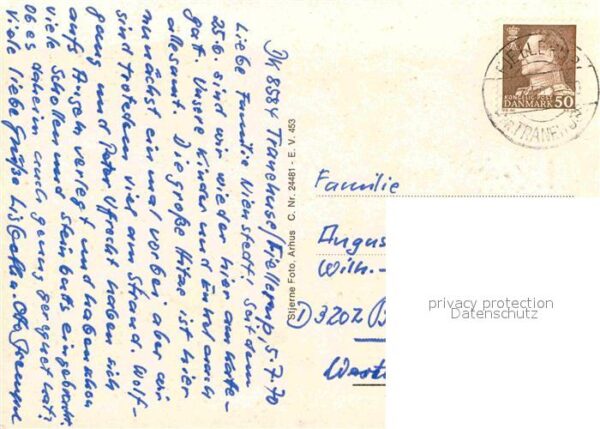 DK 8584 Tranehuse/Fjellerup, 5.7.70
Liebe Familie Nienstedt! Seit dem
25.6. sind wir wieder hier am Katte-
gatt. Unsere Kinder und Enkel auch
allesamt. Die große Hitze ist hier
zunächst einmal vorbei, aber wir
sind trotzdem viel am Strand. Wolf-
gang und Peter haben sich
aufs Angeln verlegt und haben schon
viele Schollen und Steinbutts eingebracht.
Ob es daheim auch genug geregnet hat?
Viele liebe Grüße
Stjerne Foto, Århus C. Nr. 24481 - E. V. 453
KONGELIG POST
DANMARK 50
FJELLERUP
TRANEHUSE
Familie
August
Wilh.-
D 3202 B
West
privacy protection
Datenschutz